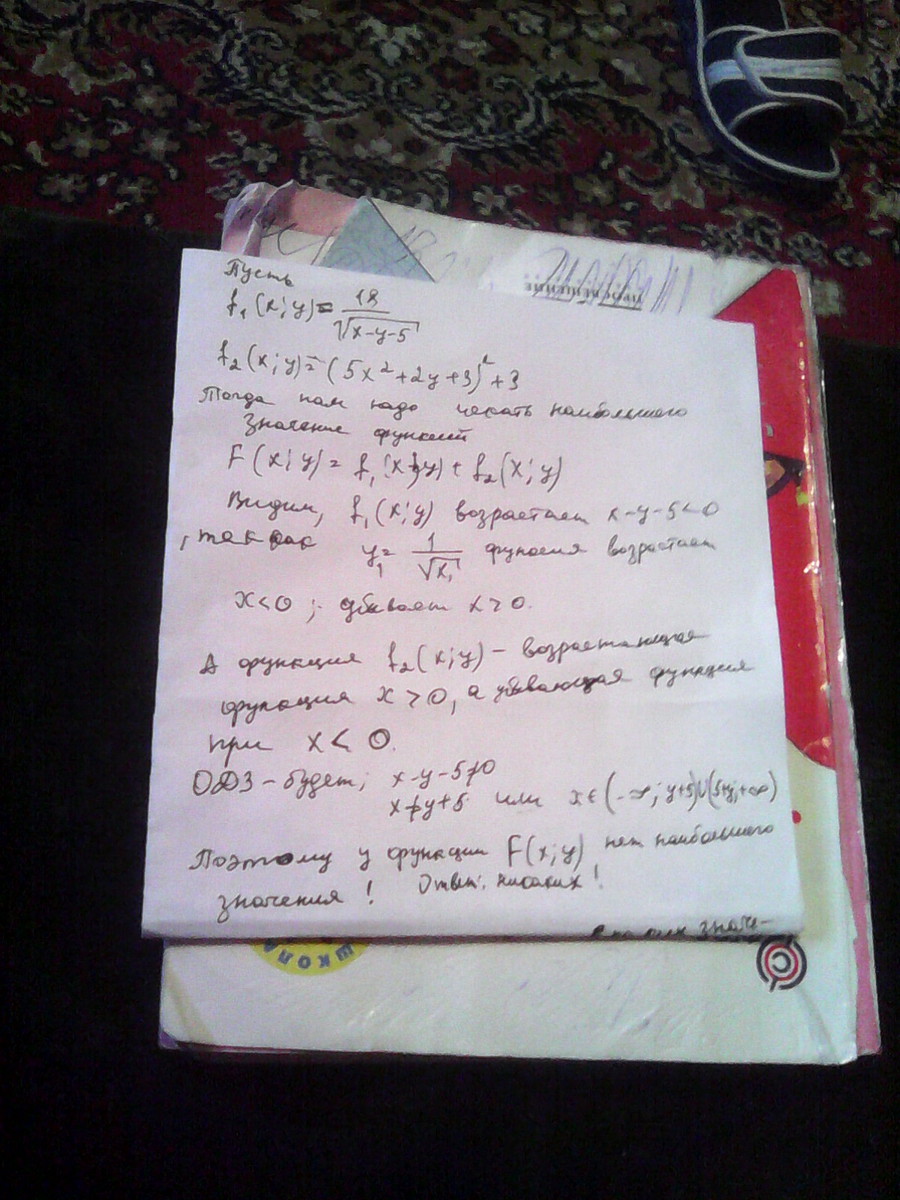 Пусть
f₁(x;y) = 18/√(x-y-5)
f₂(x;y) = (5x²+2y+3)²+3
Тогда нам надо искать наибольшого
значение функций
F(x;y) = f₁(x;y) + f₂(x;y)
Видим, f₁(x;y) возрастает x-y-5<0
, так как y₁ = 1/√x₁ функсия возрастает
x<0 ; убивает x>0.
А функция f₂(x;y) – возрастающая
функция x>0, а убивающая функция
при x < 0.
ОДЗ – будет; x-y-5≠0
x≠y+5 или x∈(-∞; y+5)∪(5+y;+∞)
Поэтому у функции F(x;y) нет наибольшого
значения! Ответ: никаких!
ПРОСВЕЩЕНИЕ
ШКОЛА